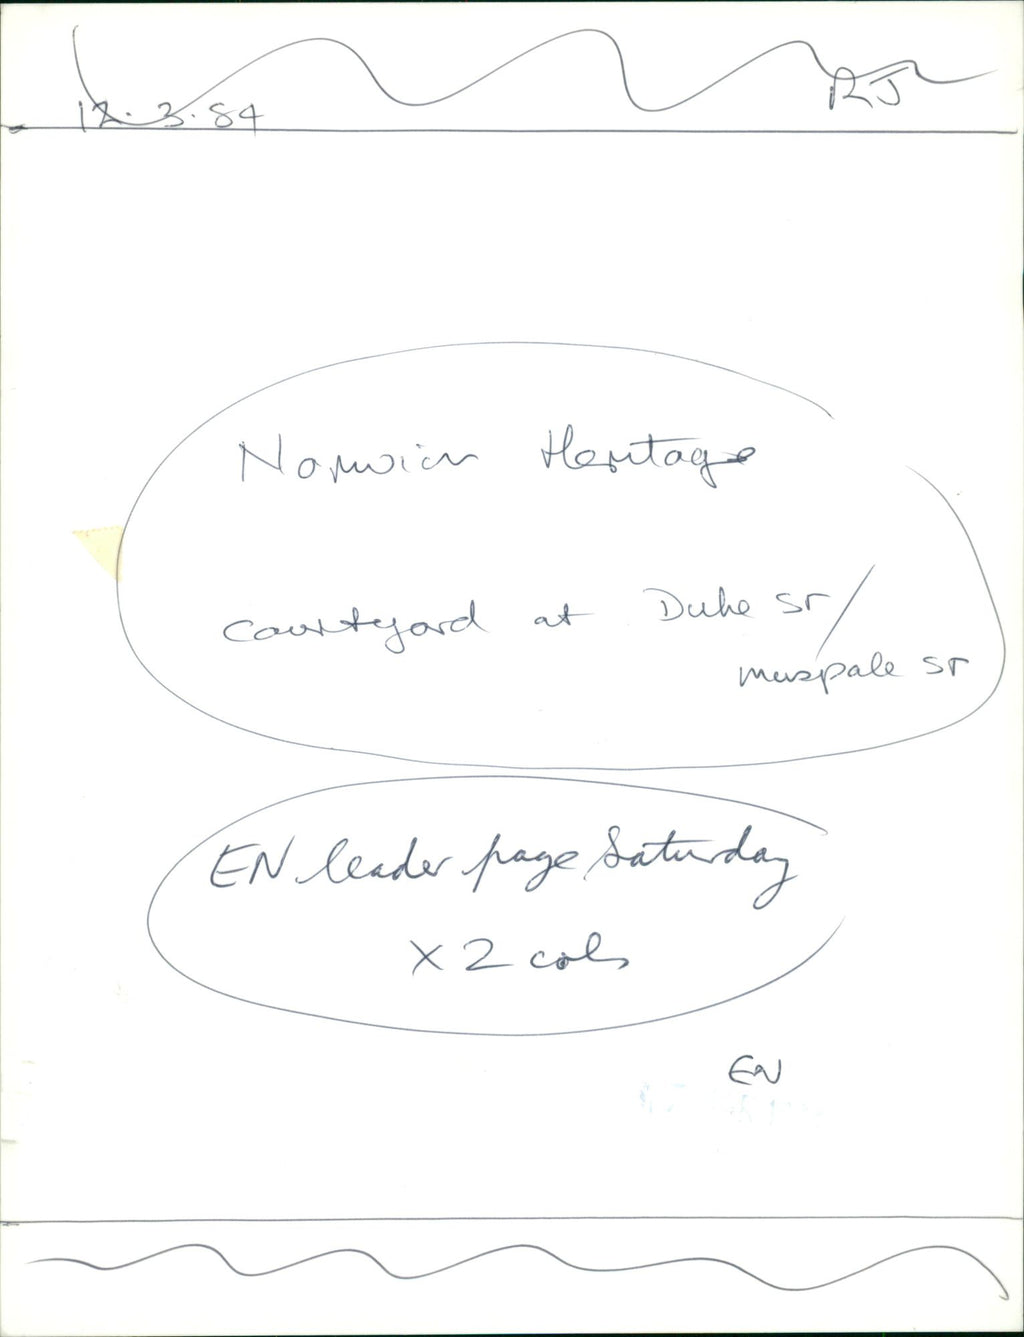 12.3.84 RJ
Norwich Heritage
courtyard at Duke St/
muspale St
EN leader page Saturday
X 2 cols
EN